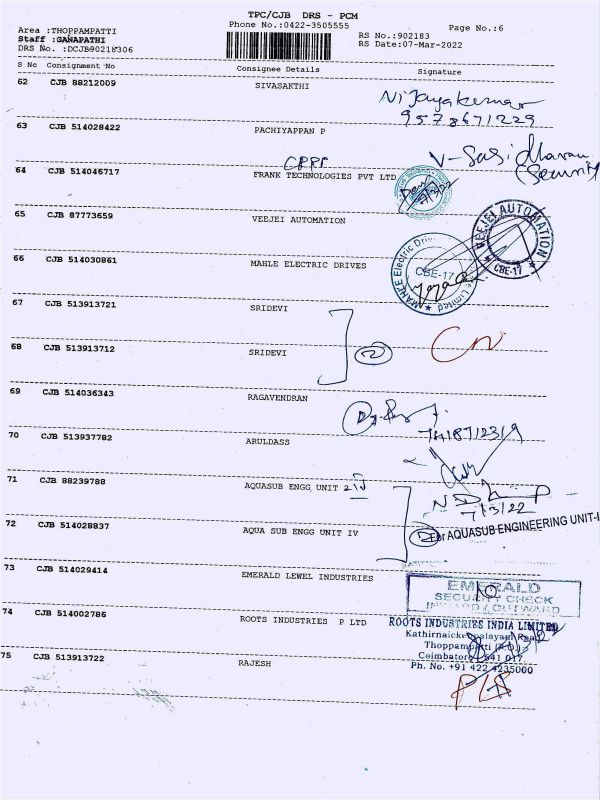 TPC/CJB DRS - PCM
Phone No.:0422-3505555
Page No.:6
Area :THOPPAMPATTI
Staff :GANAPATHI
DRS No. :DCJB90218306
RS No.:902183
RS Date:07-Mar-2022
S No Consignment No Consignee Details Signature
62 CJB 88212009 SIVASAKTHI
Nijayakumar
9578671229
63 CJB 514028422 PACHIYAPPAN P
V-Sasidharan
(Security)
64 CJB 514046717 FRANK TECHNOLOGIES PVT LTD
65 CJB 87773659 VEEJEI AUTOMATION
VEEJEI AUTOMATION
CBE-17
66 CJB 514030861 MAHLE ELECTRIC DRIVES
CBE-17
67 CJB 513913721 SRIDEVI
68 CJB 513913712 SRIDEVI
2
69 CJB 514036343 RAGAVENDRAN
70 CJB 513937782 ARULDASS
71 CJB 88239788 AQUASUB ENGG UNIT
7/3/22
72 CJB 514028837 AQUA SUB ENGG UNIT IV
For AQUASUB ENGINEERING UNIT-I
73 CJB 514029414 EMERALD LEWEL INDUSTRIES
EMERALD
SECURITY CHECK
INWARD / OUTWARD
74 CJB 514002786 ROOTS INDUSTRIES P LTD
ROOTS INDUSTRIES INDIA LIMITED
Kathirnaickenpalayam Road
Thoppampatti (P.O.)
Coimbatore - 641 017.
Ph. No. +91 422 4235000
75 CJB 513913722 RAJESH